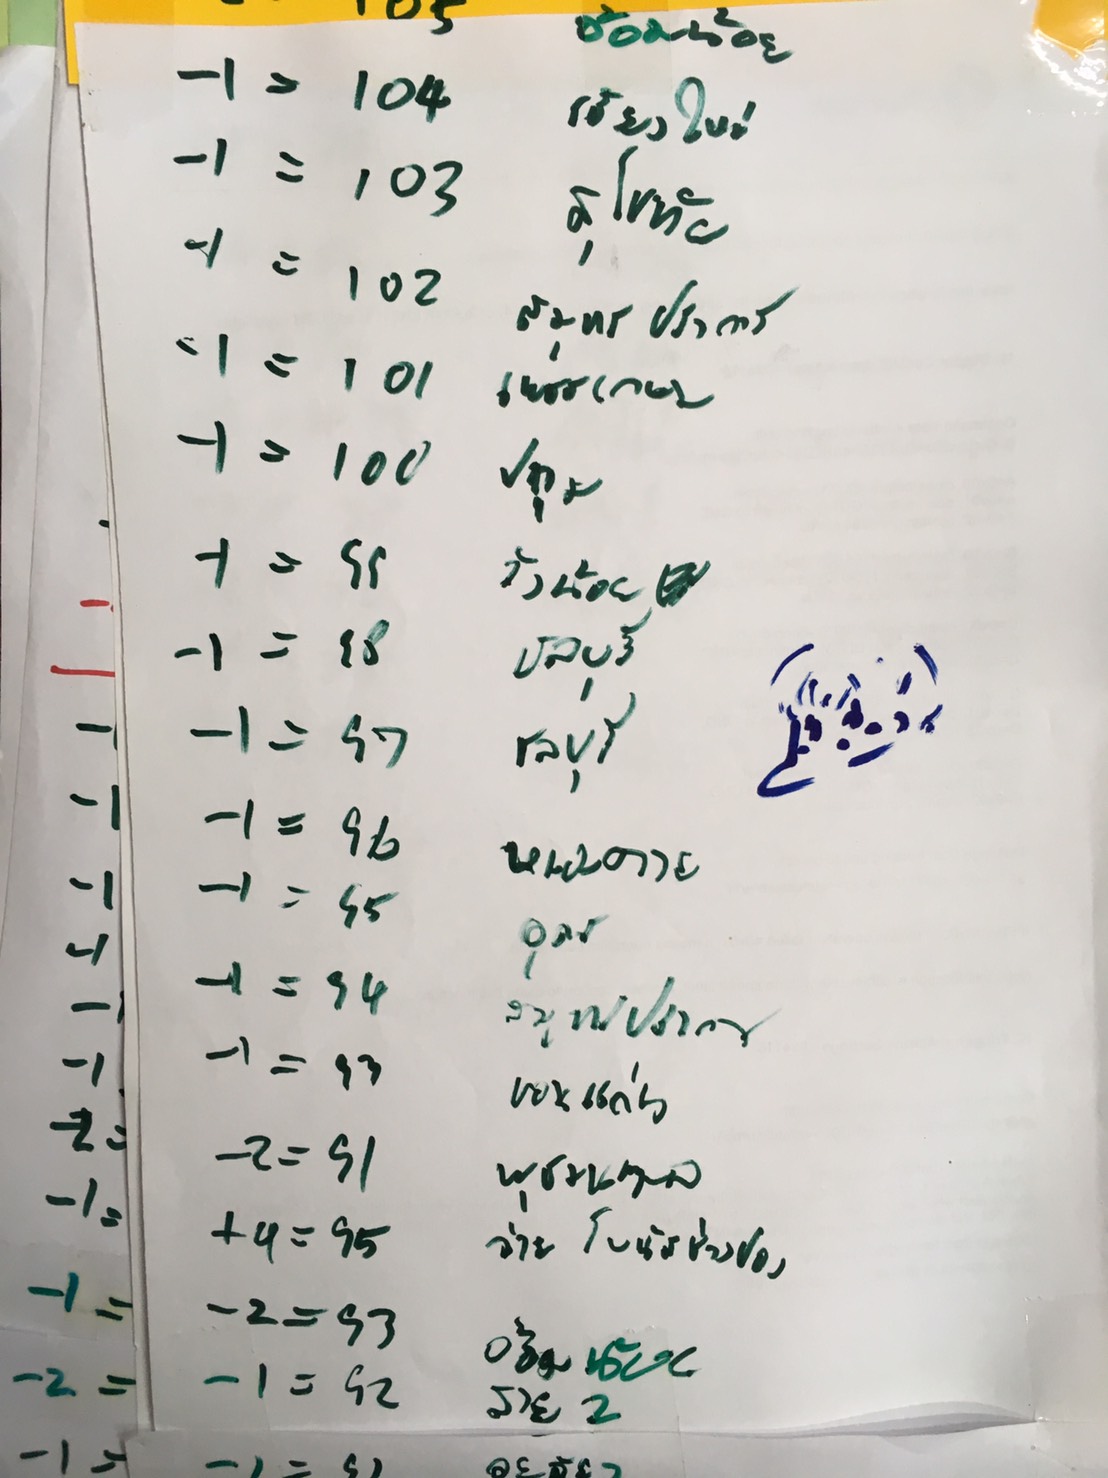 105 อ้อมน้อย
-1 = 104 เชียงใหม่
-1 = 103 สุโขทัย
-1 = 102 สมุทรปราการ
-1 = 101 เพชรเกษม
-1 = 100 ปทุม
-1 = 99 วังน้อย
-1 = 98 ชลบุรี
-1 = 97 ชลบุรี
-1 = 96
-1 = 95 อุดร
-1 = 94 สมุทรปราการ
-1 = 93 ขอนแก่น
-2 = 91 พุธมณฑล
+4 = 95 จ่าย โบนัสช่าง
-2 = 93 อ้อมน้อย
-1 = 92 สาย 2
-1 = 91
-1
-1
-1
-1
-1
-1
-2 =
-1 =
-1 =
-2 =
-1 =